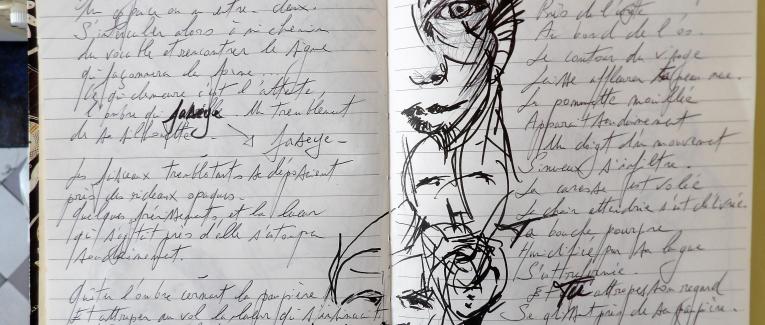 Un espace ou un entre-deux.
S'intercaler alors à mi chemin
du vocable et rencontrer le signe
qui façonnera la forme....
Ce qui demeure c'est l'attente,
l'ombre qui faseye. Un tremblement
de sa silhouette. faseye-
Les faisceaux tremblotants se déposaient
près des rideaux opaques.
quelques frémissements et la lueur
qui s'agitait près d'elle s'estompa
soudainement.
Quitter l'ombre cernant la paupière
Et attraper au vol la lueur qui s'insinuait
Près de l'
Au bord de l'os.
Le contour du visage
Laisse affleurer la peau nue.
La pommette mouillée
Apparaît soudainement
Un doigt d'un mouvement
Sinueux s'infiltre.
La caresse est volée
La chair attendrie s'est délivrée.
La bouche pourpre
Humidifiée par sa langue
S'
Et Tu attrapes son regard
Se glissant près de sa paupière.